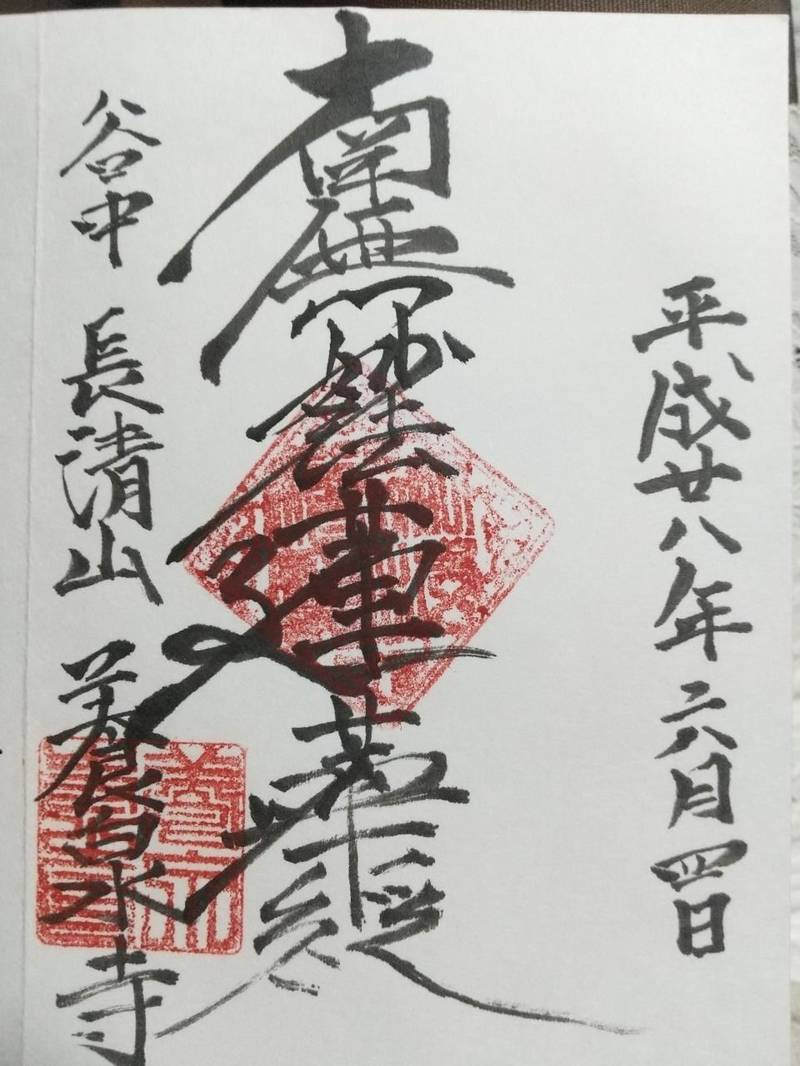 平成廿八年六月四日
南無妙法蓮華経
谷中 長清山 養泉寺